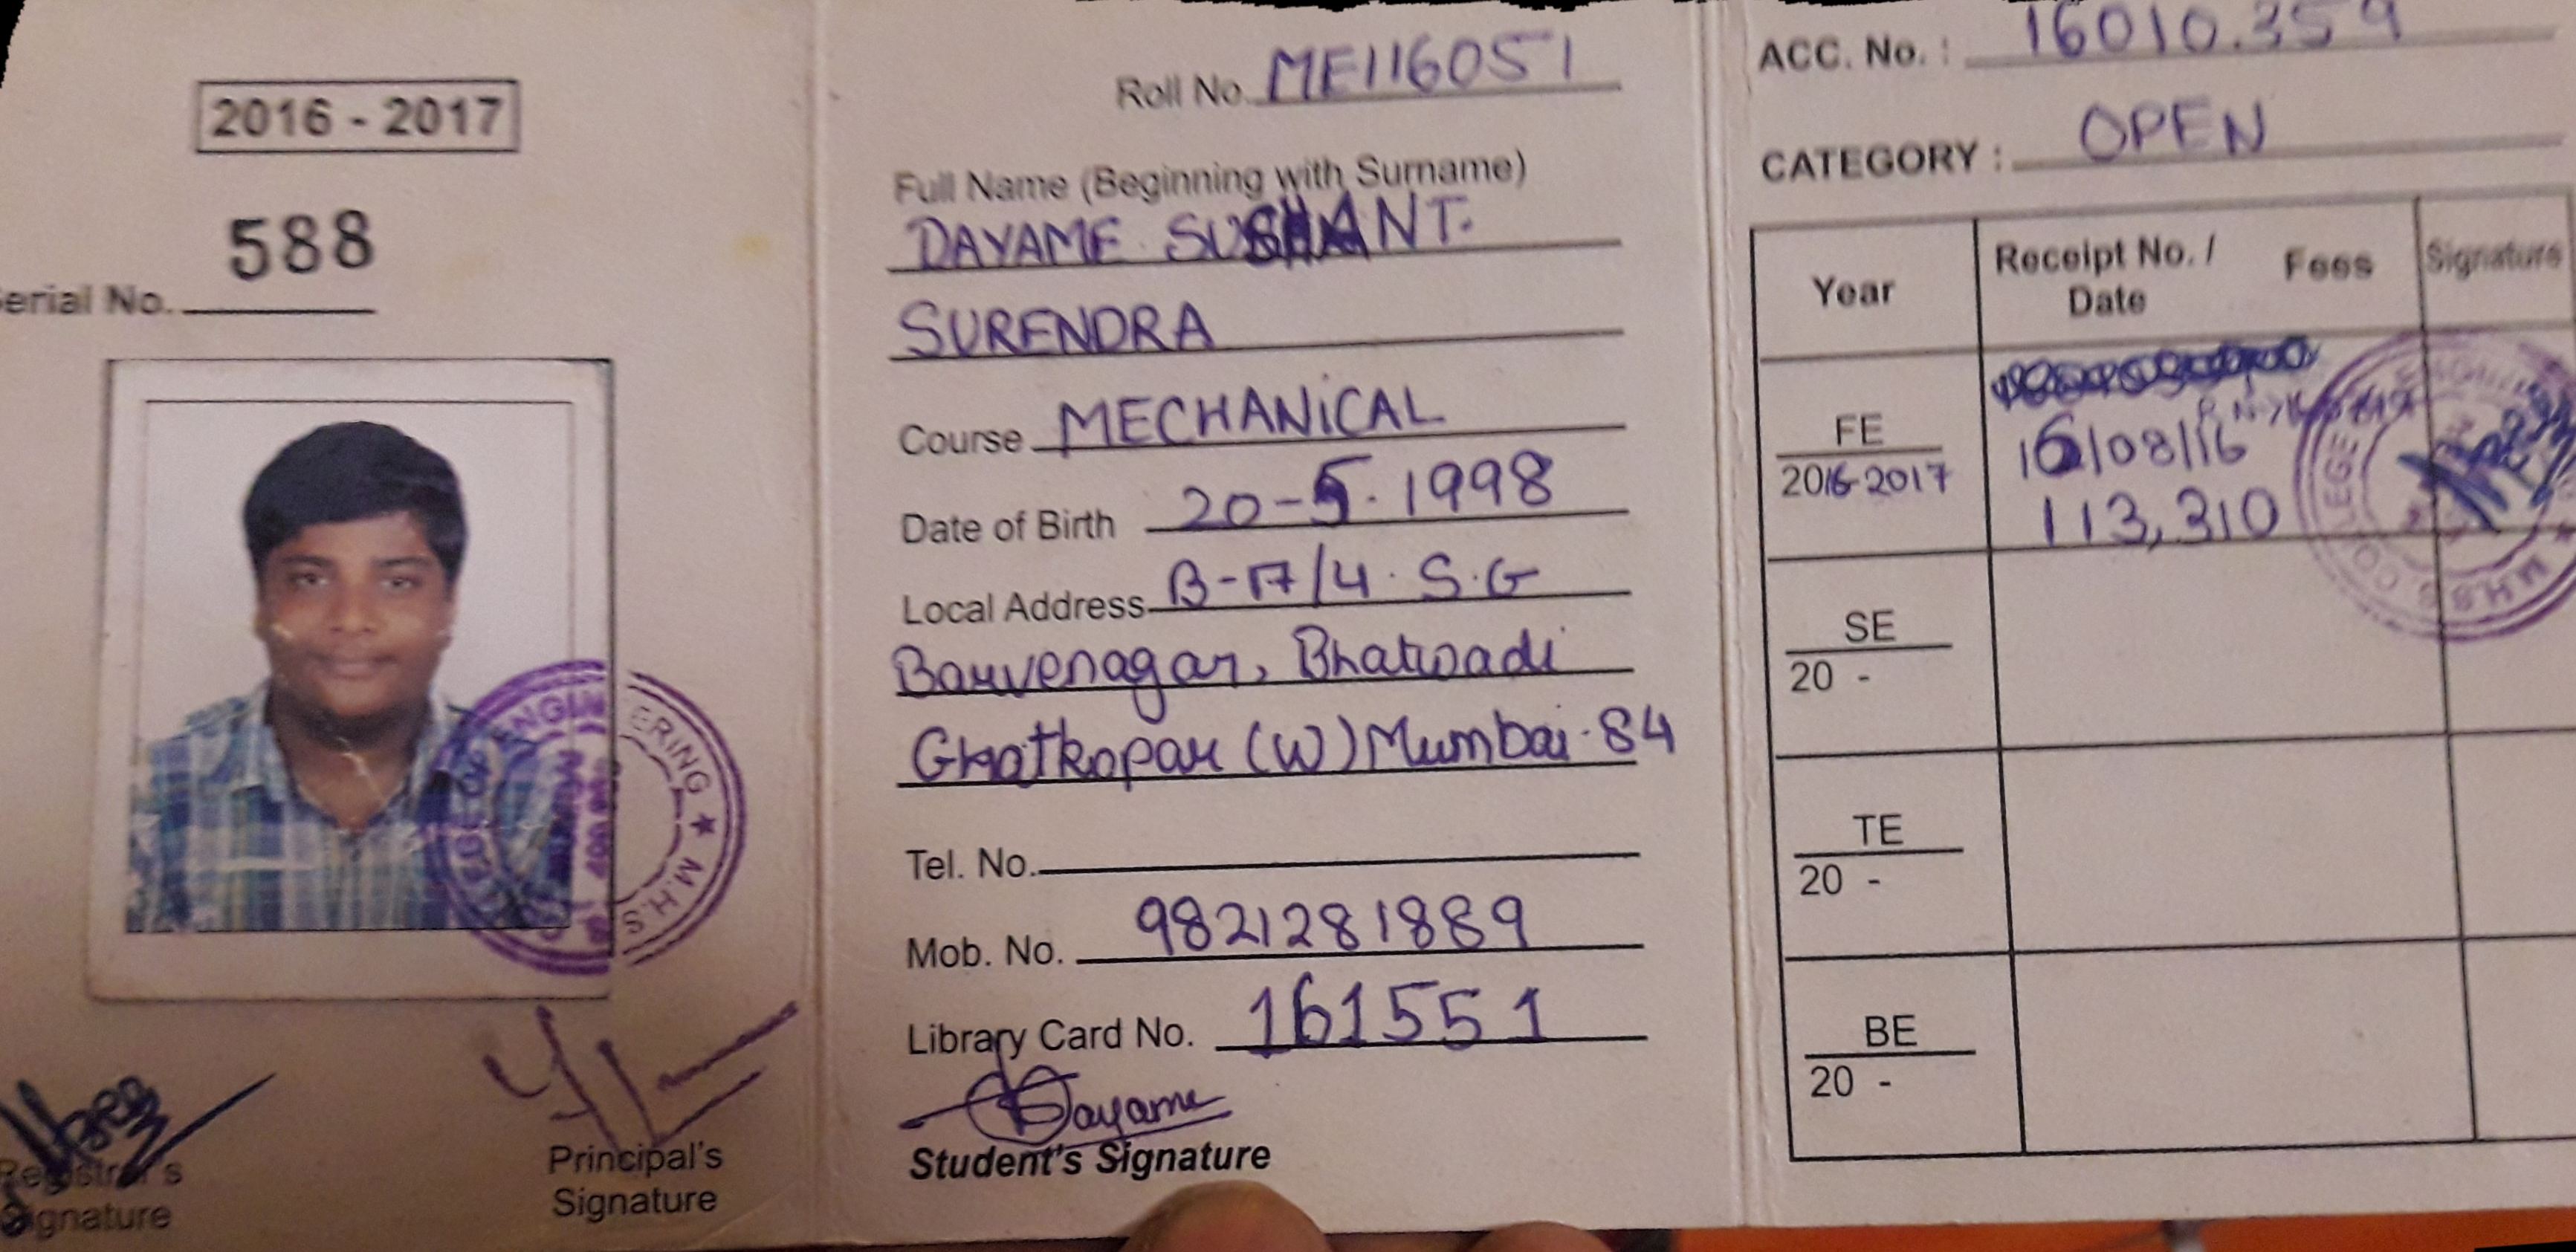 2016 - 2017
588
Serial No.
ENGINEERING ★ M.H.S
Registrar's
Signature
Principal's
Signature
Roll No. ME116051
Full Name (Beginning with Surname)
DAYAME SUSHANT.
SURENDRA
Course MECHANICAL
Date of Birth 20-5.1998
Local Address B-17/4. S.G
Barvenagar, Bhatwadi
Ghatkopar (W) Mumbai-84
Tel. No.
Mob. No. 9821281889
Library Card No. 161551
Dayame
Student's Signature
ACC. No. : 16010.359
CATEGORY : OPEN
Year Receipt No. / Date Fees Signature
FE
2016-2017
16/08/16
113,310
SE
20 -
TE
20 -
BE
20 -